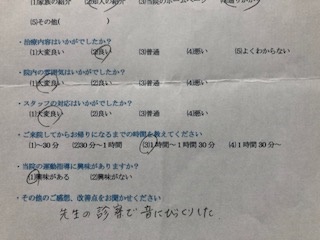 (1)家族の紹介 (2)知人の紹介 (3)当院のホームページ
(5)その他( )
・治療内容はいかがでしたか?
(1)大変良い (2)良い (3)普通 (4)悪い (5)よくわからない
・院内の雰囲気はいかがでしたか?
(1)大変良い (2)良い (3)普通 (4)悪い
・スタッフの対応はいかがでしたか?
(1)大変良い (2)良い (3)普通 (4)悪い
・ご来院してからお帰りになるまでの時間を教えてください
(1)～30分 (2)30分～1時間 (3)1時間～1時間30分 (4)1時間30分～
・当院の運動指導に興味がありますか?
(1)興味がある (2)興味がない
・その他のご感想、改善点をお聞かせください
先生の診察で音にびっくりした